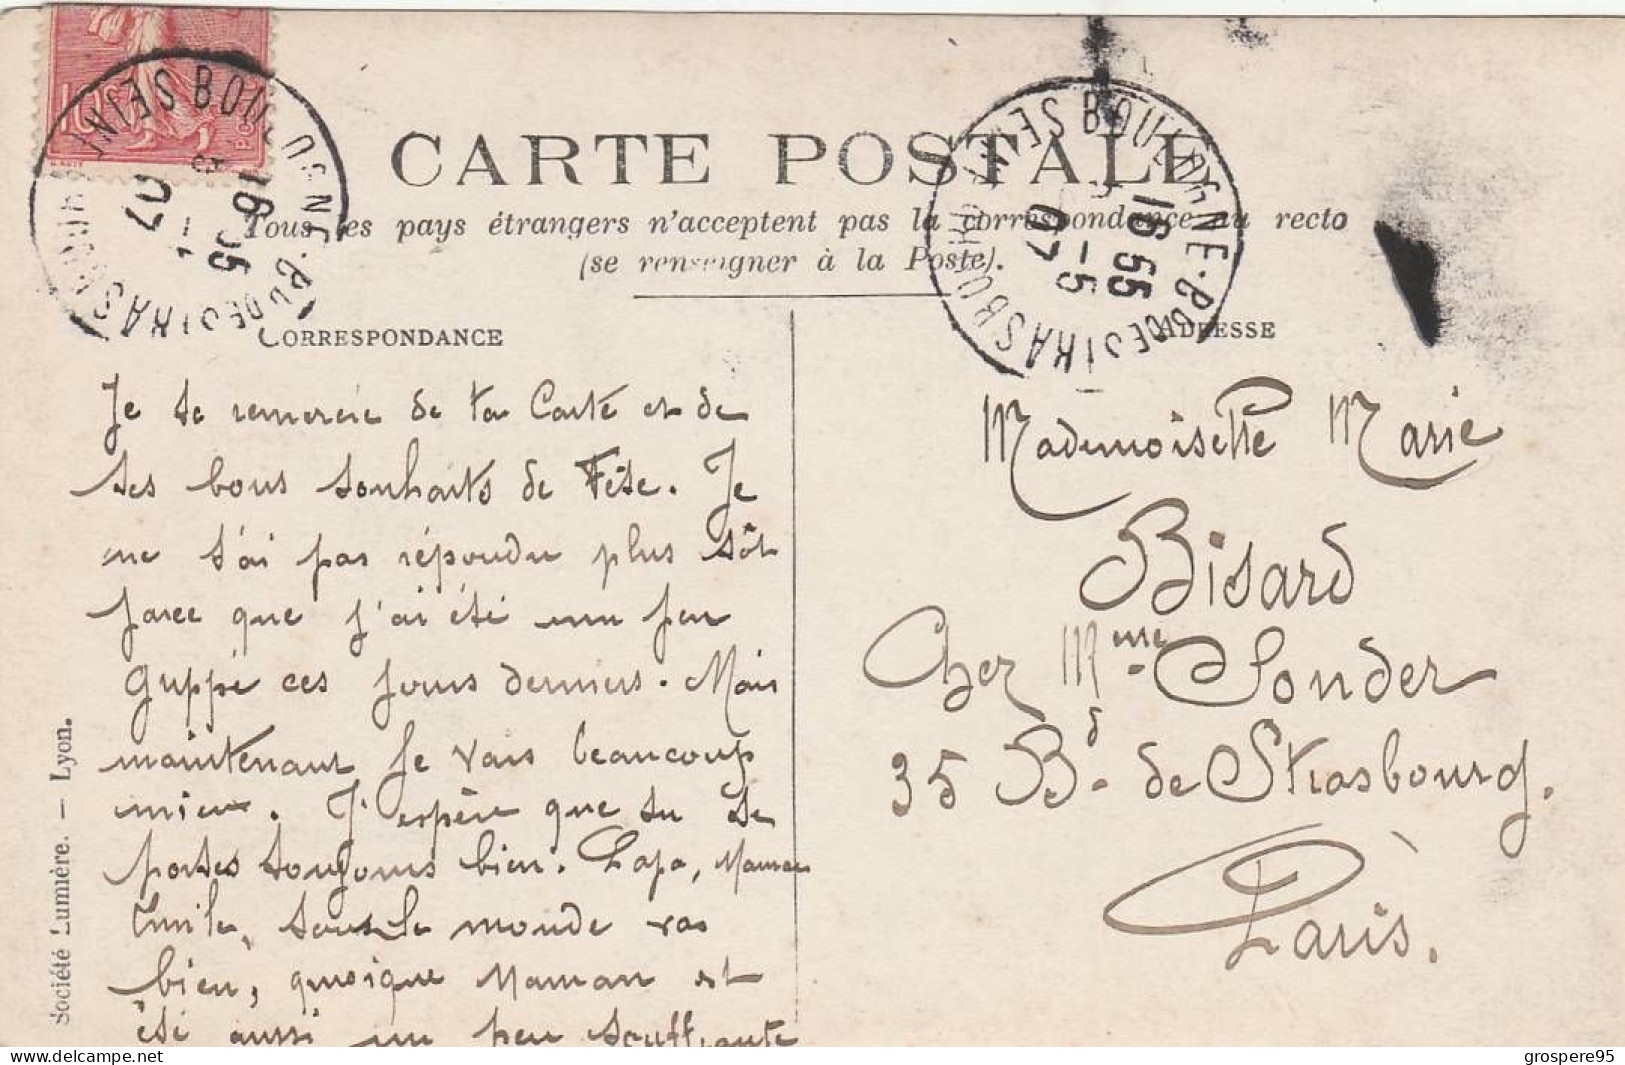 CARTE POSTALE
Tous les pays étrangers n'acceptent pas la correspondance au recto
(se renseigner à la Poste).
CORRESPONDANCE
ADRESSE
BOULOGNE-S-SEINE R. DE STRASBOURG
16 55
5
07
BOULOGNE-S-SEINE R. DE STRASBOURG
16 55
5-5
07
10c
Je te remercie de ta Carte et de
tes bons souhaits de Fête. Je
ne t'ai pas répondu plus tôt
parce que j'ai été un peu
grippé ces jours derniers. Mais
maintenant je vais beaucoup
mieux. J'espère que tu te
portes toujours bien. Papa, Maman
Emile, tout le monde va
bien, quoique Maman ait
été aussi un peu souffrante
Mademoiselle Marie
Bisard
Chez Mme Sonder
35 Bd. de Strasbourg.
Paris.
Société Lumière. — Lyon.
www.delcampe.net
grospere95